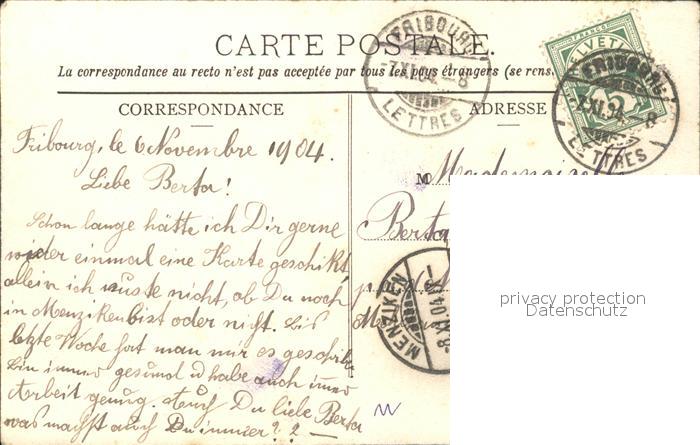 CARTE POSTALE.
La correspondance au recto n'est pas acceptée par tous les pays étrangers (se rens
CORRESPONDANCE
ADRESSE
FRIBOURG
-7.XI.04.-8
LETTRES
HELVETIA
FRANCO
FRIBOURG
7.XI.04.-8
LETTRES
Fribourg, le 6 Novembre 1904.
Liebe Berta!
Schon lange hätte ich Dir gerne
wider einmal eine Karte geschikt,
allein ich wuste nicht, ob Du noch
in Menziken bist oder nicht. Bis
letzte Woche hat man mir es geschrieben
bin immer gesund u habe auch immer
Arbeit genug. Auch Du liebe Berta
was machst auch Du immer? ? —
M Mademoisell
Berta
MENZIKEN
-8.XI.04.
privacy protection
Datenschutz